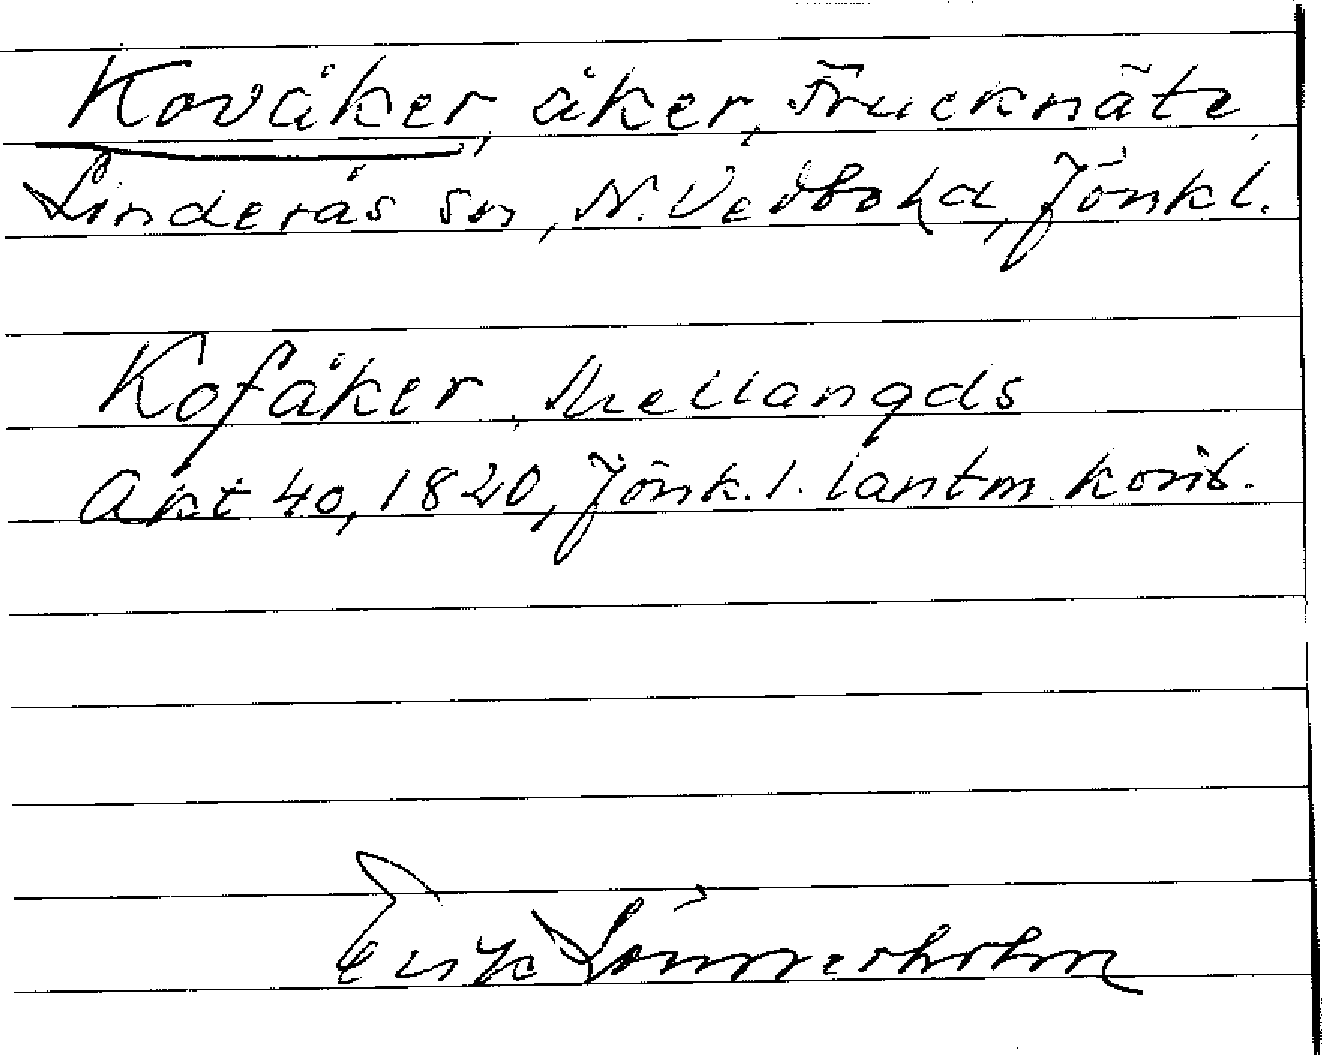 Kovåker, åker, Trucknäte
Linderås sn, N. Vedbohd, Jönkl.
Kofåker, Mellangds
Akt 40, 1820, Jönk. l. lantm. kont.
Erik Lönnerholm